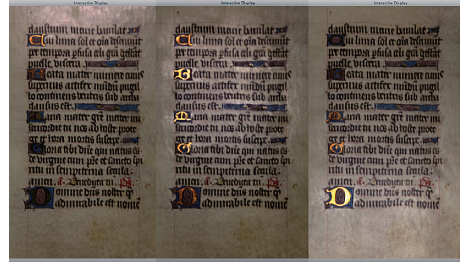 Interactive Display
claustrum marie baiulat
Cui luna sol et oia deseruiut
per tempora pfusa celi gra gestat
puelle viscera
Beata mater munere cuius
supernus artifex mundi pugil
lo continens ventris sub archa
clausus est.
Maria mater gre mater mi
sericordie tu nos ab hoste prote
ge et hora mortis suscipe
Gloria tibi dne qui natus es
de virgine cum pre et sancto spi
ritu in sempiterna secula.
amen. Benedicta tu. ps
Domine dns noster q
admirabile est nome
Interactive Display
claustrum marie baiulat
Cui luna sol et oia deseruiut
per tempora pfusa celi gra gestat
puelle viscera
Beata mater munere cuius
supernus artifex mundi pugil
lo continens ventris sub archa
clausus est.
Maria mater gre mater mi
sericordie tu nos ab hoste prote
ge et hora mortis suscipe
Gloria tibi dne qui natus es
de virgine cum pre et sancto spi
ritu in sempiterna secula.
amen. Benedicta tu. ps
Domine dns noster q
admirabile est nome
Interactive Display
claustrum marie baiulat
Cui luna sol et oia deseruiut
per tempora pfusa celi gra gestat
puelle viscera
Beata mater munere cuius
supernus artifex mundi pugil
lo continens ventris sub archa
clausus est.
Maria mater gre mater mi
sericordie tu nos ab hoste prote
ge et hora mortis suscipe
Gloria tibi dne qui natus es
de virgine cum pre et sancto spi
ritu in sempiterna secula.
amen. Benedicta tu. ps
Domine dns noster q
admirabile est nome